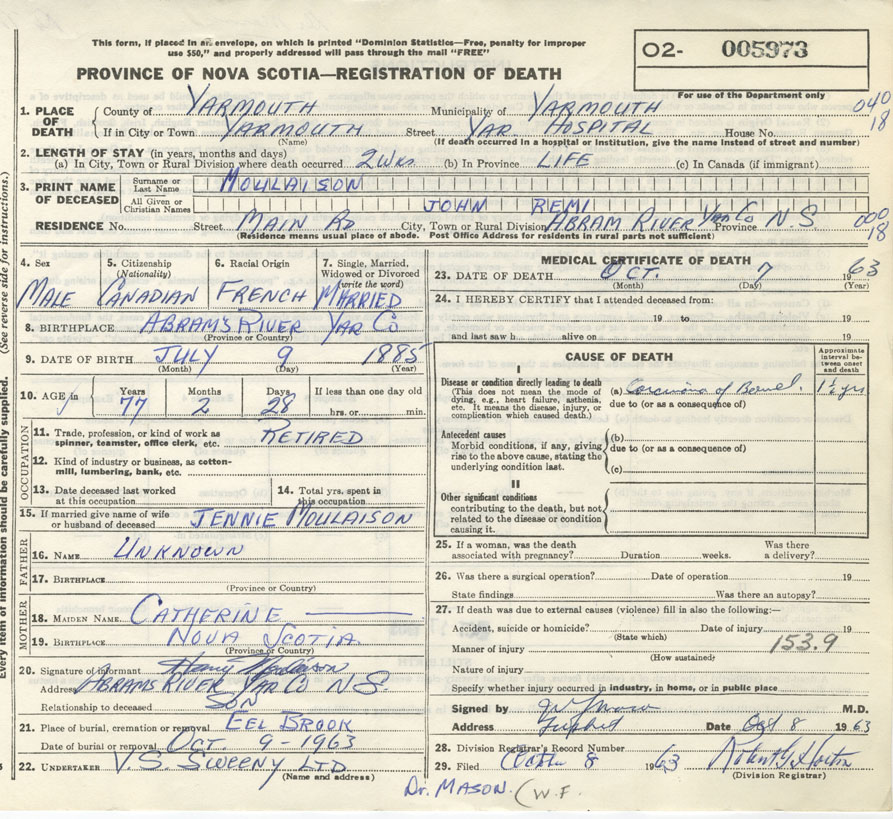 This form, if placed in an envelope, on which is printed "Dominion Statistics—Free, penalty for improper
use $50," and properly addressed will pass through the mail "FREE"
PROVINCE OF NOVA SCOTIA—REGISTRATION OF DEATH
02- 005973
For use of the Department only
040
18
1. PLACE OF DEATH
County of YARMOUTH Municipality of YARMOUTH
If in City or Town YARMOUTH Street YAR HOSPITAL House No.
(Name) (If death occurred in a hospital or institution, give the name instead of street and number)
2. LENGTH OF STAY (in years, months and days)
(a) In City, Town or Rural Division where death occurred 2 wks (b) In Province LIFE (c) In Canada (if immigrant)
3. PRINT NAME OF DECEASED
Surname or Last Name MOULAISON
All Given or Christian Names JOHN REMI
RESIDENCE No. Street MAIN RD City, Town or Rural Division ABRAM RIVER YAR CO Province N.S 000
18
(Residence means usual place of abode. Post Office Address for residents in rural parts not sufficient)
4. Sex MALE
5. Citizenship (Nationality) CANADIAN
6. Racial Origin FRENCH
7. Single, Married, Widowed or Divorced (write the word) MARRIED
8. BIRTHPLACE ABRAM'S RIVER YAR CO
(Province or Country)
9. DATE OF BIRTH JULY 9 1885
(Month) (Day) (Year)
10. AGE in Years 77 Months 2 Days 28 If less than one day old
hrs. or min.
OCCUPATION
11. Trade, profession, or kind of work as spinner, teamster, office clerk, etc. RETIRED
12. Kind of industry or business, as cotton-mill, lumbering, bank, etc.
13. Date deceased last worked at this occupation
14. Total yrs. spent in this occupation
15. If married give name of wife or husband of deceased JENNIE MOULAISON
FATHER
16. NAME UNKNOWN
17. BIRTHPLACE
(Province or Country)
MOTHER
18. MAIDEN NAME CATHERINE
19. BIRTHPLACE NOVA SCOTIA
(Province or Country)
20. Signature of informant
Address ABRAMS RIVER YAR CO N S.
Relationship to deceased SON
21. Place of burial, cremation or removal EEL BROOK
Date of burial or removal OCT. 9-1963
22. UNDERTAKER V.S. SWEENY LTD
(Name and address)
MEDICAL CERTIFICATE OF DEATH
23. DATE OF DEATH OCT. 7 1963
(Month) (Day) (Year)
24. I HEREBY CERTIFY that I attended deceased from:
19 to 19
and last saw h alive on 19
CAUSE OF DEATH
Approximate interval between onset and death
I
Disease or condition directly leading to death
(This does not mean the mode of dying, e.g., heart failure, asthenia, etc. It means the disease, injury, or complication which caused death.)
(a) Carcinoma of Bowel. 1½ yrs
due to (or as a consequence of)
Antecedent causes
Morbid conditions, if any, giving rise to the above cause, stating the underlying condition last.
(b)
due to (or as a consequence of)
(c)
II
Other significant conditions
contributing to the death, but not related to the disease or condition causing it.
25. If a woman, was the death associated with pregnancy? Duration weeks. Was there a delivery?
26. Was there a surgical operation? Date of operation 19
State findings Was there an autopsy?
27. If death was due to external causes (violence) fill in also the following:—
Accident, suicide or homicide? Date of injury 19
(State which)
Manner of injury 153.9
(How sustained)
Nature of injury
Specify whether injury occurred in industry, in home, or in public place
Signed by M.D.
Address Date Oct 8 1963
28. Division Registrar's Record Number
29. Filed 8 1963
(Division Registrar)
Dr. MASON. (W.F.
Every item of information should be carefully supplied. (See reverse side for instructions.)